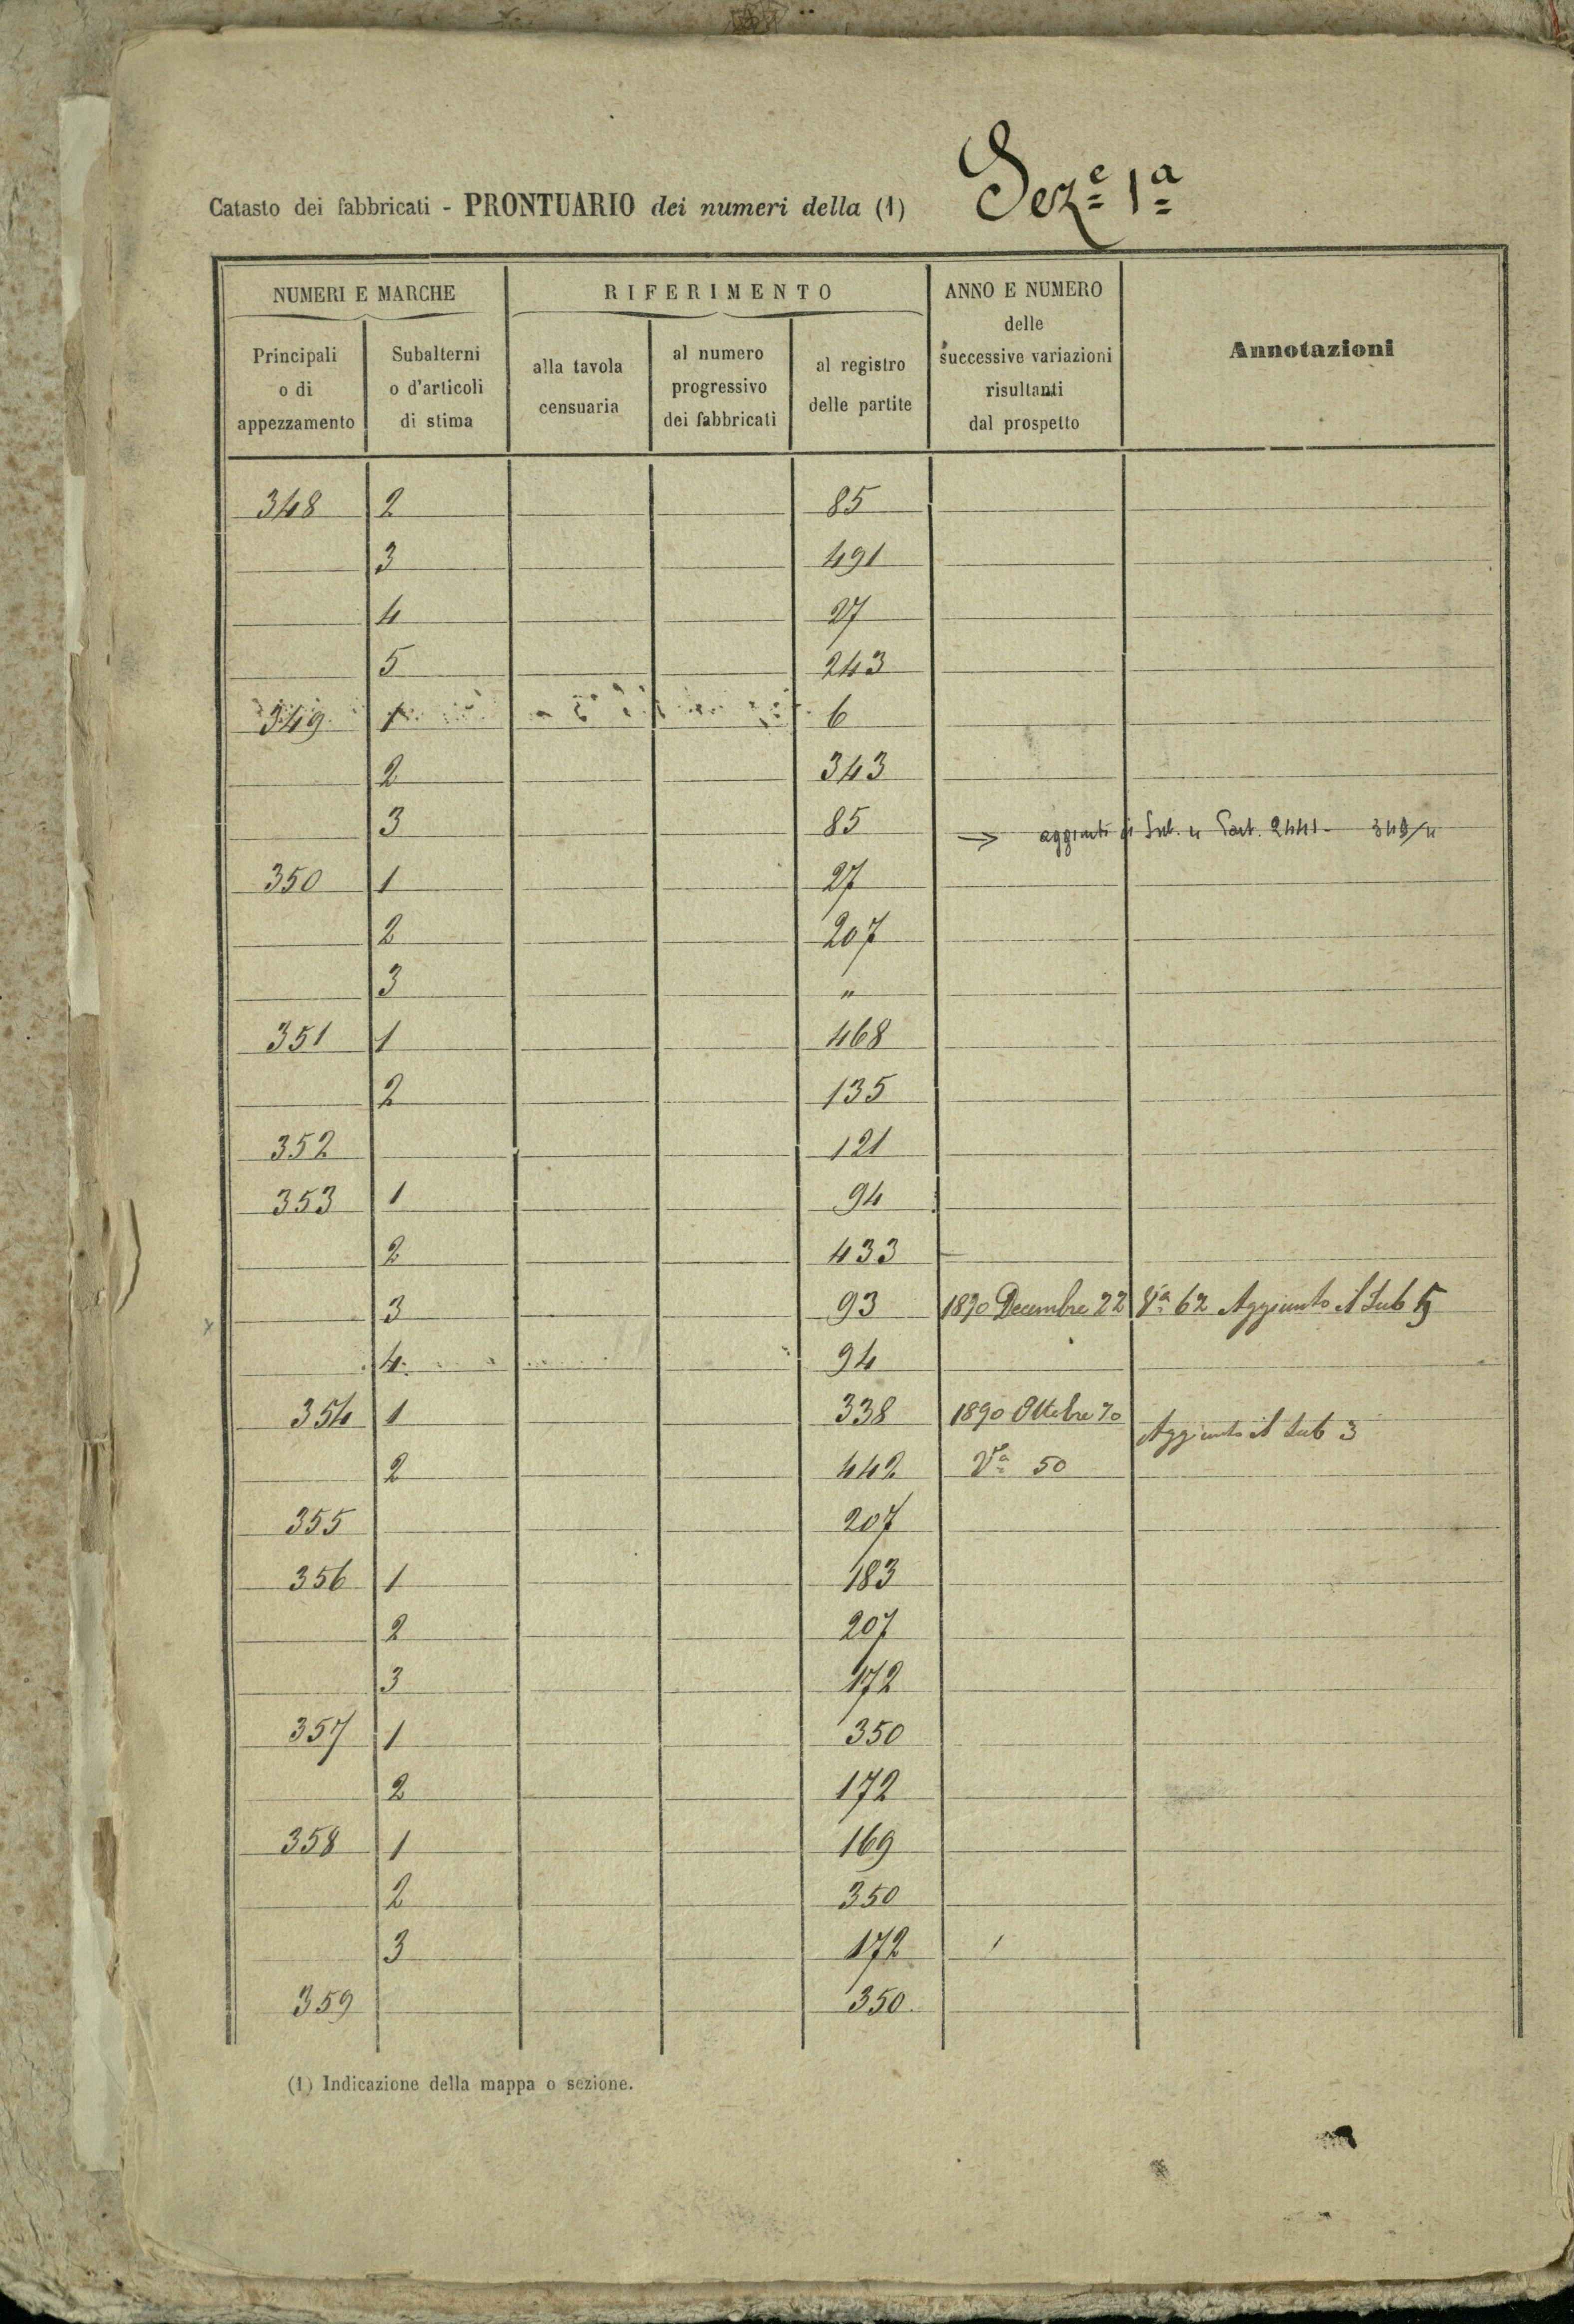 Catasto dei fabbricati - PRONTUARIO dei numeri della (1) Sez.e 1a
NUMERI E MARCHE
RIFERIMENTO
ANNO E NUMERO
delle
successive variazioni
risultanti
dal prospetto
Annotazioni
Principali
o di
appezzamento
Subalterni
o d'articoli
di stima
alla tavola
censuaria
al numero
progressivo
dei fabbricati
al registro
delle partite
348 2 85
3 491
4 27
5 243
349 1 6
2 343
3 85 → aggiunto il Sub. 4 Part. 2441 - 349/4
350 1 27
2 207
3 "
351 1 468
2 135
352 121
353 1 94
2 433
3 93 1890 Decembre 22 Va 62 Aggiunto il Sub 5
4 94
354 1 338 1890 Ottobre Aggiunto il Sub 3
2 442 Va 50
355 207
356 1 183
2 207
3 172
357 1 350
2 172
358 1 169
2 350
3 172
359 350
(1) Indicazione della mappa o sezione.